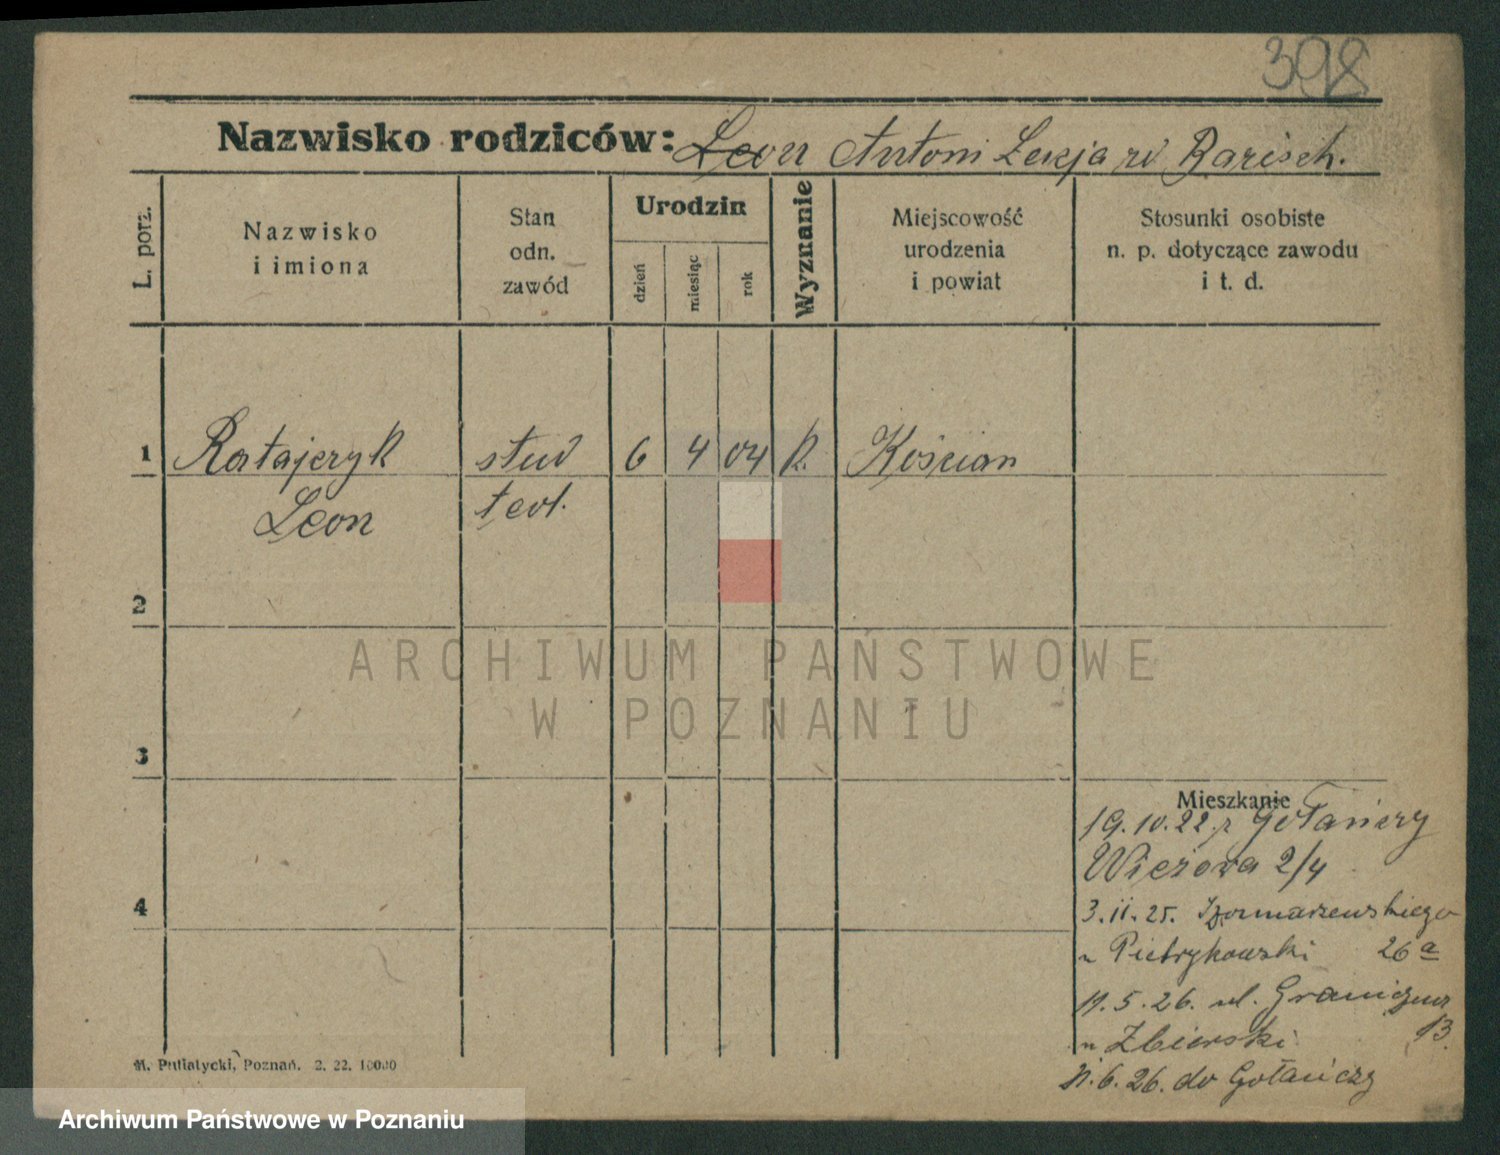 398
Nazwisko rodziców: Leon Antoni Lukja zd Barisch.
L. porz.
Nazwisko
i imiona
Stan
odn.
zawód
Urodzin
dzień
miesiąc
rok
Wyznanie
Miejscowość
urodzenia
i powiat
Stosunki osobiste
n. p. dotyczące zawodu
i t. d.
1 Ratajczyk stud 6 4 04 k. Kościan
Leon teol.
2
3
4
ARCHIWUM PAŃSTWOWE
W POZNANIU
Mieszkanie
19.10.22. z Gołańczy
Wieżowa 2/4
3.11.25.
u Pietrykowski 26a
5.26. ul. Graniczna
u Zbierski 13
6.26. do Gołańczy
M. Putiatycki, Poznań. 2. 22. 10000
Archiwum Państwowe w Poznaniu